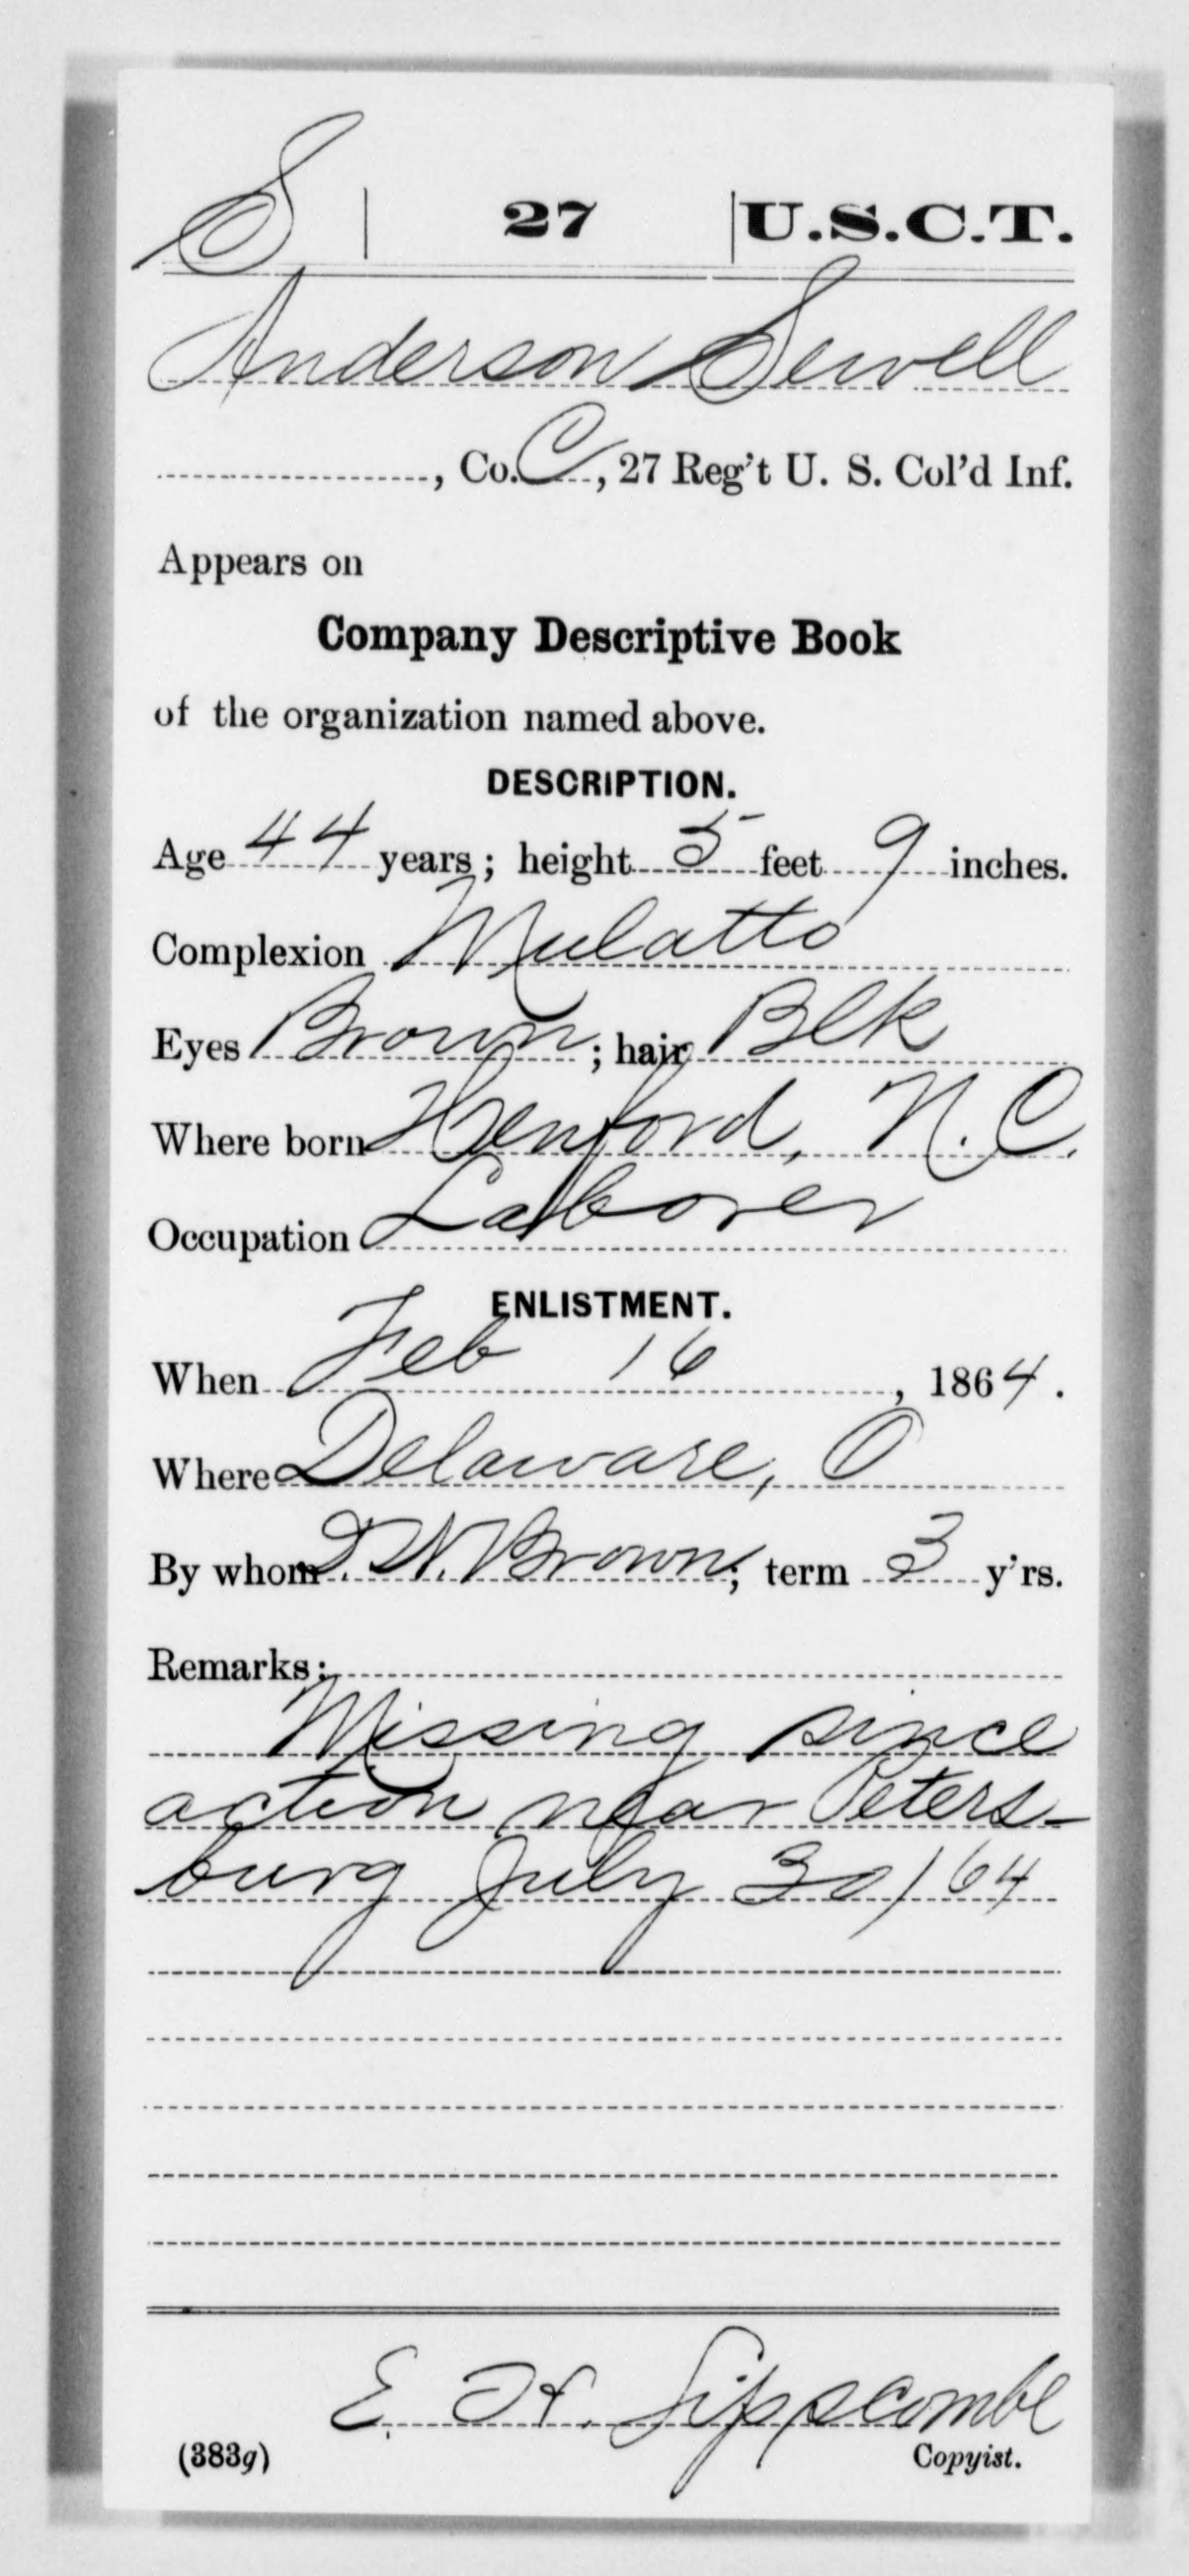 S | 27 | U.S.C.T.
Anderson Sewell
, Co. C, 27 Reg't U. S. Col'd Inf.
Appears on
Company Descriptive Book
of the organization named above.
DESCRIPTION.
Age 44 years; height 5 feet 9 inches.
Complexion Mulatto
Eyes Brown; hair Blk
Where born Henford, N.C.
Occupation Laborer
ENLISTMENT.
When Feb 16, 1864.
Where Delaware, O
By whom Brown; term 3 y'rs.
Remarks:
Missing since
action near Peters-
burg July 30/64
E. H. Lipscombe
(383g) Copyist.